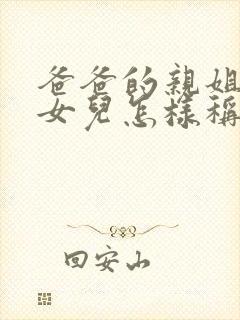 爸爸的親姐
女兒怎樣稱
回安山